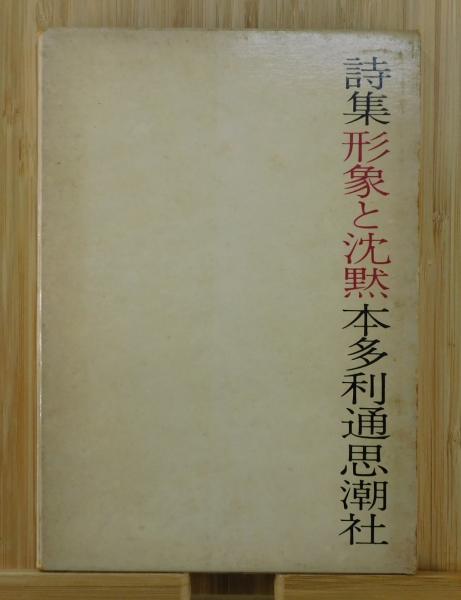 詩集形象と沈黙本多利通思潮社